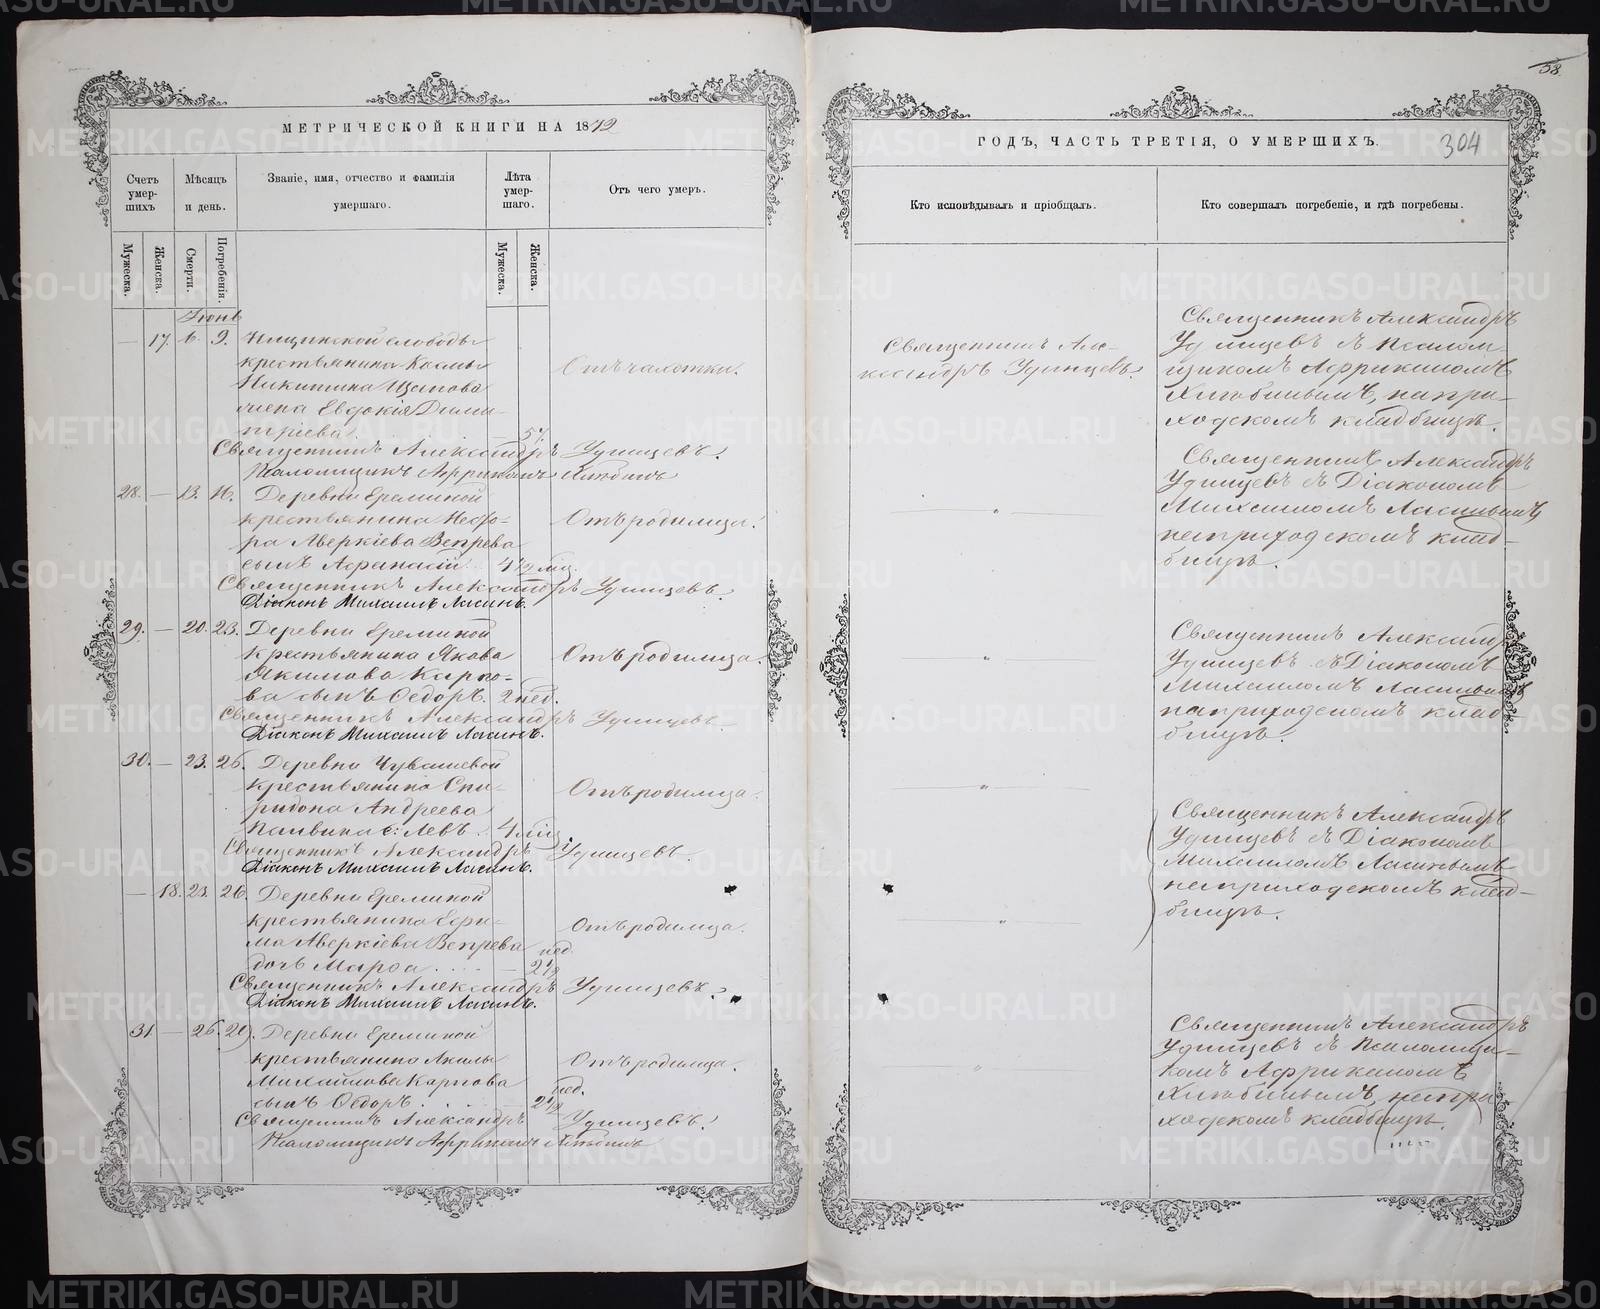 МЕТРИЧЕСКОЙ КНИГИ НА 1872
Счетъ умер-шихъ
Мѣсяцъ и день.
Званіе, имя, отчество и фамилія умершаго.
Лѣта умер-шаго.
Отъ чего умеръ.
Мужеска.
Женска.
Смерти.
Погребенія.
Мужеска.
Женска.
Іюнь
— 17. 6. 9.
слободы
крестьянина Космы
Никитина
жена Евдокія Дими-
тріева 57.
Отъ чахотки.
Священникъ Александръ Удинцевъ.
Псаломщикъ Африканъ
28. — 13. 16. Деревни Ереминой
крестьянина Несто-
ра Аверкіева Вепрева
сынъ Афанасій 4 1/2 мѣс.
Отъ родимца.
Священникъ Александръ Удинцевъ.
Діаконъ Михаилъ Ласинъ.
29. — 20. 23. Деревни Ереминой
крестьянина Якова
Якимова Карпо-
ва сынъ Ѳедоръ. 2 нед.
Отъ родимца.
Священникъ Александръ Удинцевъ.
Діаконъ Михаилъ Ласинъ.
30. — 23. 26. Деревни Чувашевой
крестьянина Спи-
ридона Андреева
с: Левъ 4 мѣс.
Отъ родимца.
Священникъ Александръ Удинцевъ.
Діаконъ Михаилъ Ласинъ.
— 18. 23. 26. Деревни Ереминой
крестьянина Ефи-
ма Аверкіева Вепрева
дочь Марѳа . . . . — 2 1/2 нед.
Отъ родимца.
Священникъ Александръ Удинцевъ.
Діаконъ Михаилъ Ласинъ.
31 — 26. 29. Деревни Ереминой
крестьянина Акилы
Михайлова Карпова
сынъ Ѳедоръ . . . . 2 1/2 нед.
Отъ родимца.
Священникъ Александръ Удинцевъ.
Псаломщикъ Африканъ
58.
304
ГОДЪ, ЧАСТЬ ТРЕТІЯ, О УМЕРШИХЪ.
Кто исповѣдывалъ и пріобщалъ.
Кто совершалъ погребеніе, и гдѣ погребены.
Священникъ Але-
ксандръ Удинцевъ.
Священникъ Александръ
Удинцевъ съ Псалом-
щикомъ Африканомъ
на при-
ходскомъ кладбищѣ.
— „ —
Священникъ Александръ
Удинцевъ съ Діакономъ
Михаиломъ Ласинымъ,
на приходскомъ клад-
бищѣ.
— „ —
Священникъ Александръ
Удинцевъ съ Діакономъ
Михаиломъ Ласинымъ
на приходскомъ клад-
бищѣ.
— „ —
Священникъ Александръ
Удинцевъ съ Діакономъ
Михаиломъ Ласинымъ
на приходскомъ клад-
бищѣ.
— „ —
Священникъ Александръ
Удинцевъ съ Псаломщи-
комъ Африканомъ
на при-
ходскомъ кладбищѣ.
— „ —
METRIKI.GASO-URAL.RU